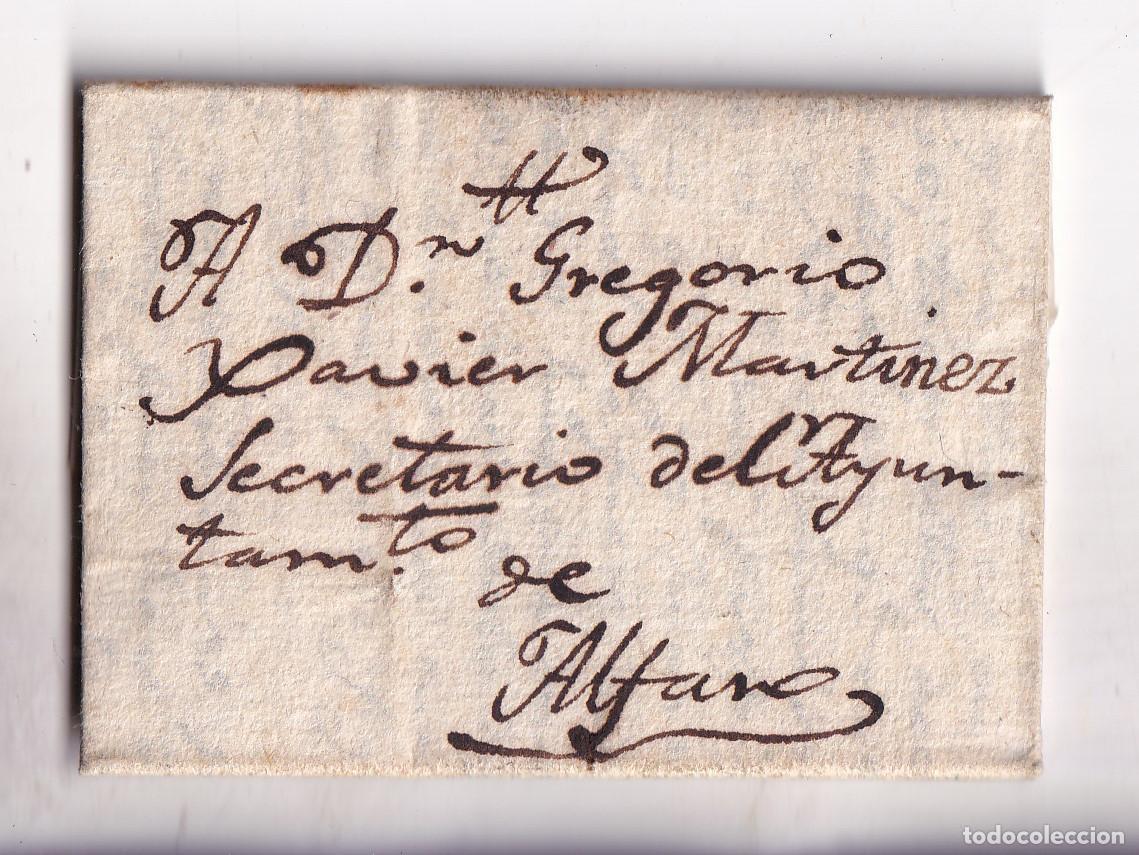 A D.ⁿ Gregorio
Xavier Martinez
Secretario del Ayun-
tam.ᵗᵒ de
Alfaro
todocoleccion